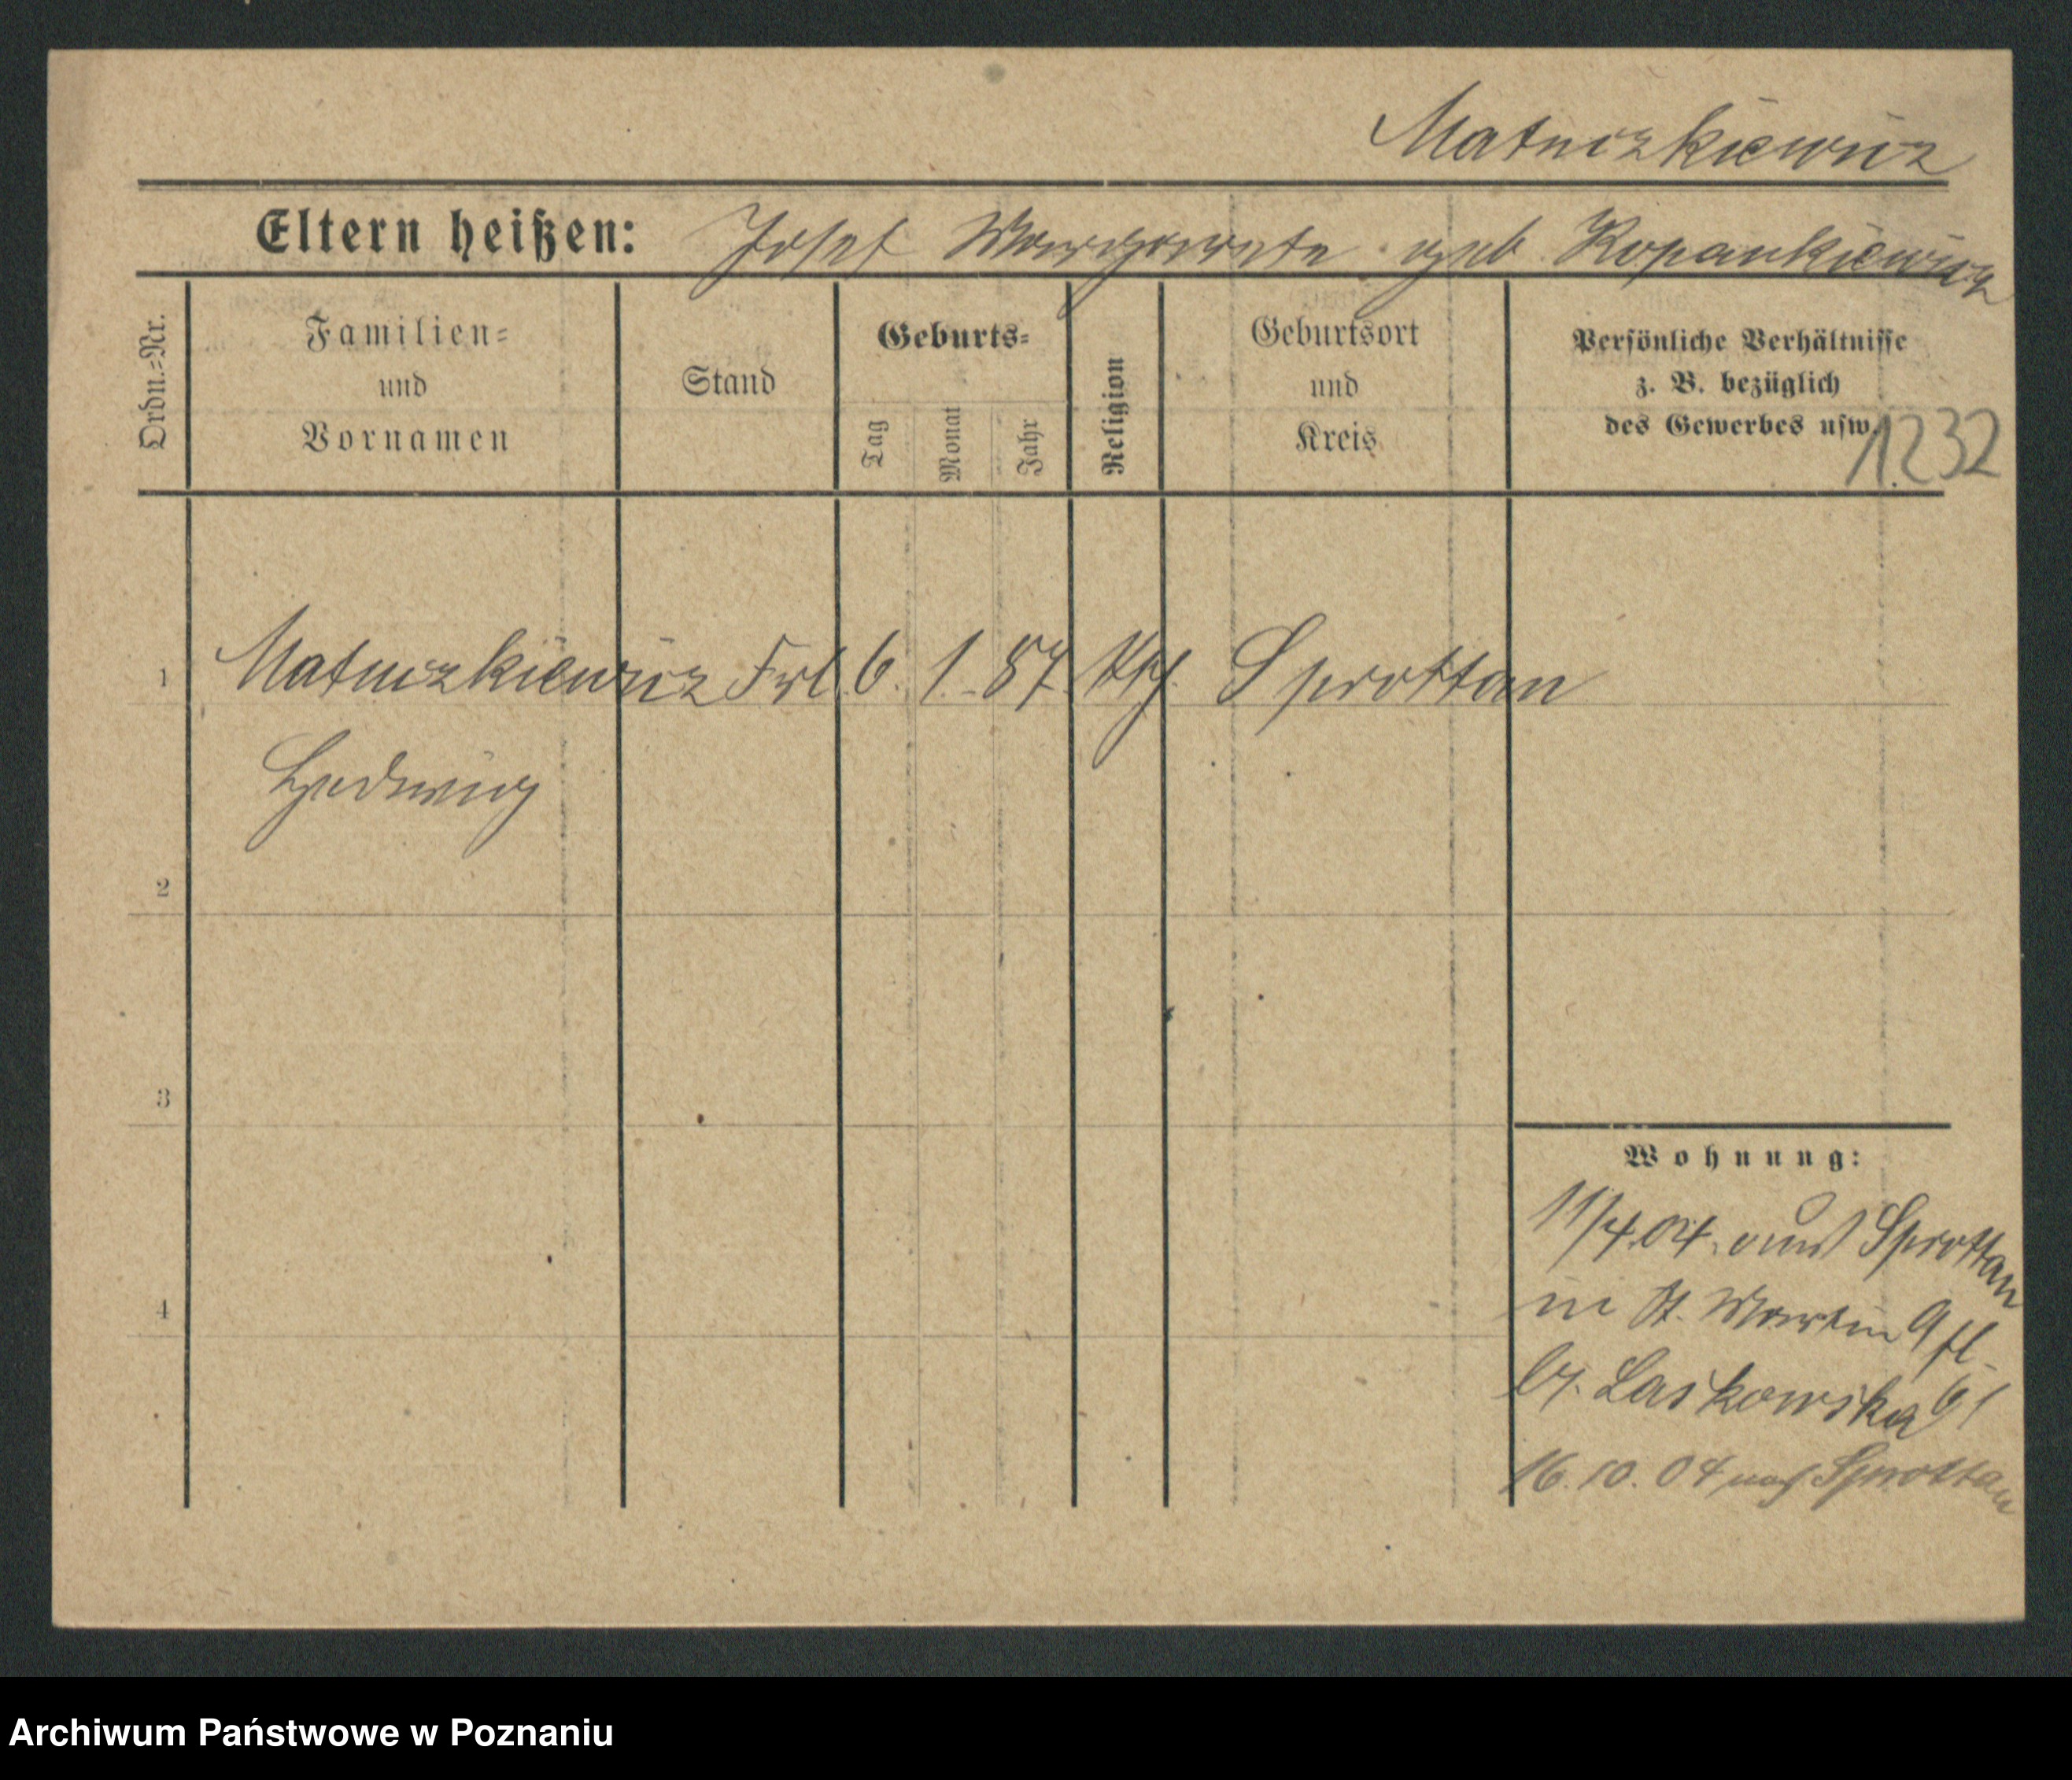 Matuszkiewicz
Eltern heißen: Josef Margarete geb Kopankiewicz
Ordn.=Nr.
Familien=
und
Vornamen
Stand
Geburts=
Tag
Monat
Jahr
Religion
Geburtsort
und
Kreis
Persönliche Verhältnisse
z. B. bezüglich
des Gewerbes usw.
1232
1 Matuszkiewicz Frl. 6. 1. 87. Kth. Sprottau
Hedwig
2
3
4
Wohnung:
11/4.04. aus Sprottau
in St. Martin 9 fl.
by. Laskowska
16.10.04 nach Sprottau
Archiwum Państwowe w Poznaniu